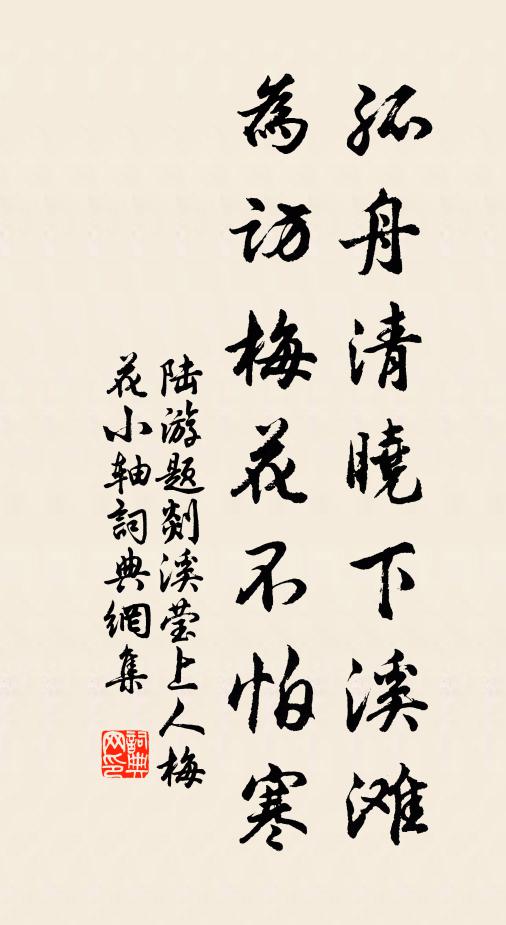 孤舟清曉下溪滩
為訪梅花不怕寒
陆游题剡溪莹上人梅
花小轴詞典網集
詞典网印